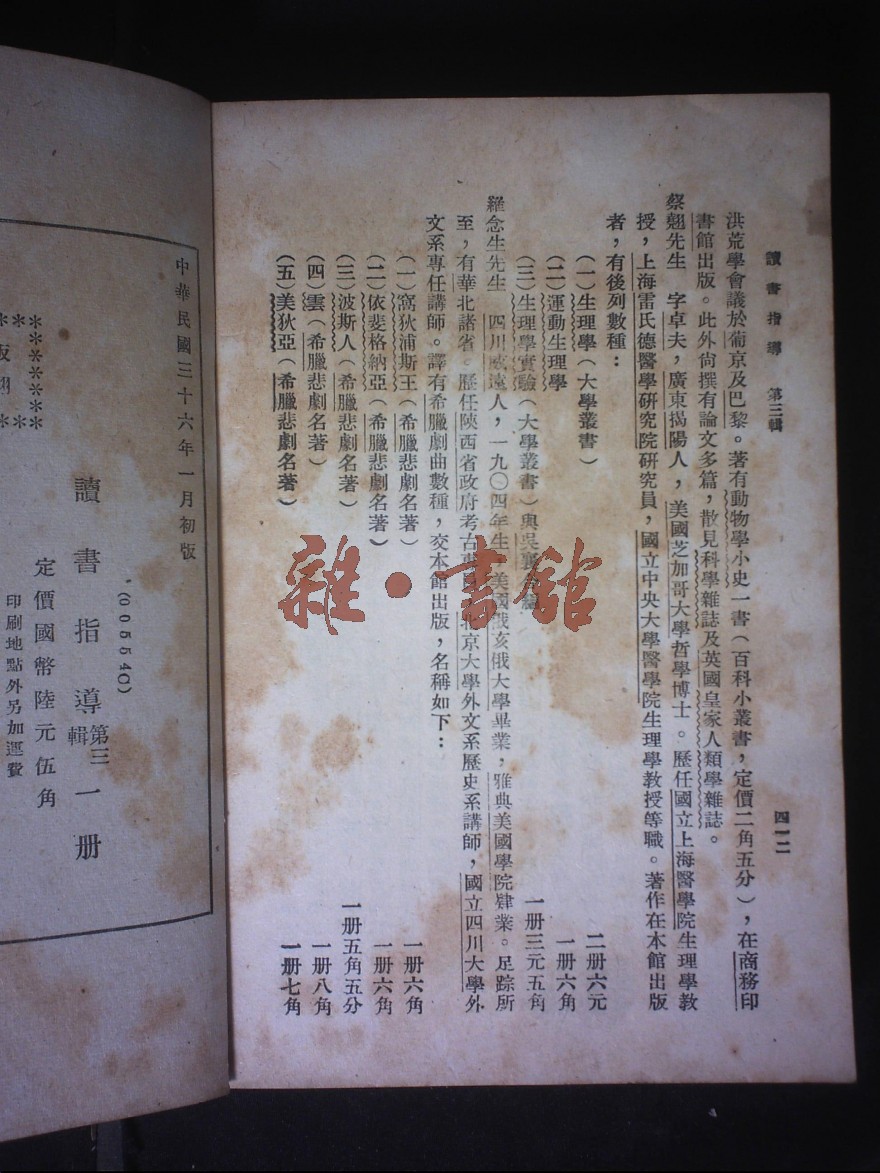 讀書指導　第三輯
四一二
洪荒學會議於葡京及巴黎。著有動物學小史一書（百科小叢書，定價二角五分），在商務印
書館出版。此外尙撰有論文多篇，散見科學雜誌及英國皇家人類學雜誌。
蔡翹先生　字卓夫，廣東揭陽人，美國芝加哥大學哲學博士。歷任國立上海醫學院生理學教
授，上海雷氏德醫學研究院研究員，國立中央大學醫學院生理學教授等職。著作在本館出版
者，有後列數種：
（一）生理學（大學叢書）　二册六元
（二）運動生理學　一册六角
（三）生理學實驗（大學叢書）與吳襄　一册三元五角
羅念生先生　四川威遠人，一九〇四年生，美國俄亥俄大學畢業，雅典美國學院肄業。足踪所
至，有華北諸省。歷任陝西省政府考古　北京大學外文系歷史系講師，國立四川大學外
文系專任講師。譯有希臘劇曲數種，交本館出版，名稱如下：
（一）窩狄浦斯王（希臘悲劇名著）　一册六角
（二）依斐格納亞（希臘悲劇名著）　一册六角
（三）波斯人（希臘悲劇名著）　一册五角五分
（四）雲（希臘悲劇名著）　一册八角
（五）美狄亞（希臘悲劇名著）　一册七角
雜·書館
中華民國三十六年一月初版
(00554○)
讀書指導第三輯一册
定價國幣陸元伍角
印刷地點外另加運費